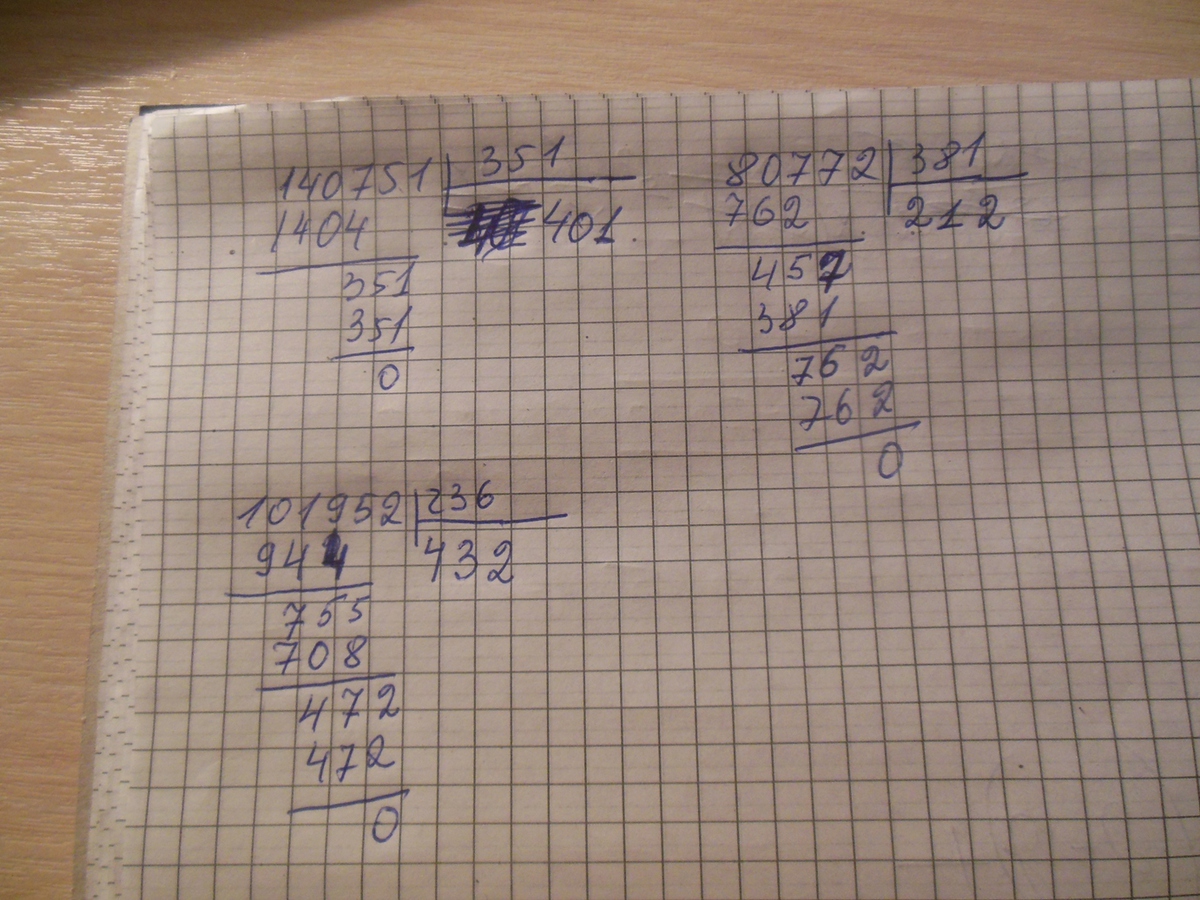 140751 351
1404 401
351
351
0
80772 381
762 212
457
381
762
762
0
101952 236
944 432
755
708
472
472
0